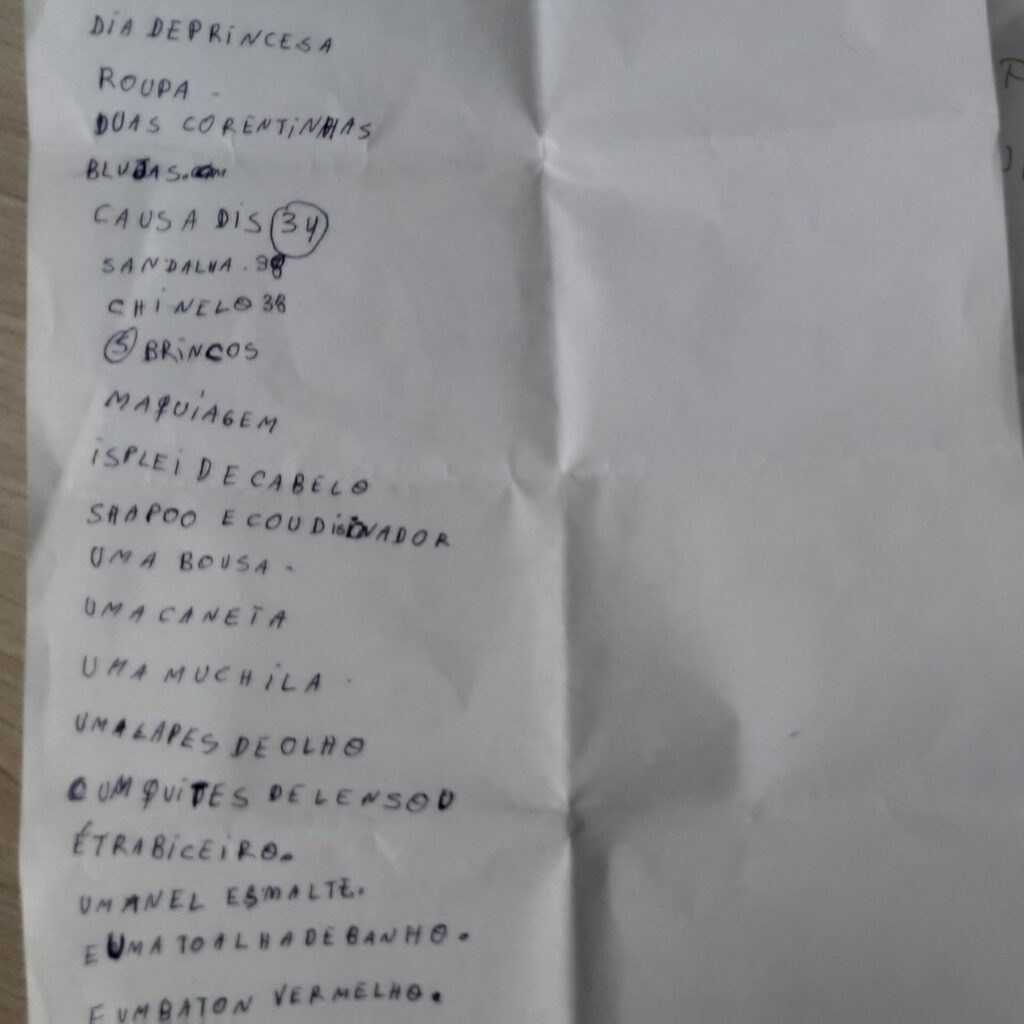 DIA DEPRINCESA
ROUPA -
DUAS CORENTINHAS
BLUSAS.
CAUSA DIS 34
SANDALHA. 38
CHINELO 38
5 BRINCOS
MAQUIAGEM
ISPLEI DE CABELO
SHAPOO E COUDISONADOR
UMA BOUSA -
UMA CANETA
UMA MUCHILA
UMA LAPES DE OLHO
UM QUITES DE LENSOD
ÉTRABICEIRO.
UM ANEL ESMALTE.
E UMA TOALHA DE BANHO.
E UM BATON VERMELHO.